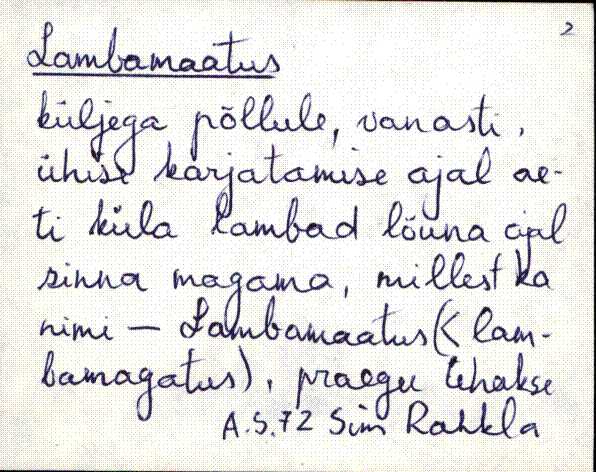 2
Lambamaatus
küljega põllule, vanasti,
ühise karjatamise ajal ae-
ti küla lambad lõuna ajal
sinna magama, millest ka
nimi — Lambamaatus (< lam-
bamagatus), praegu tehakse
A.S.72 Sim Rahkla